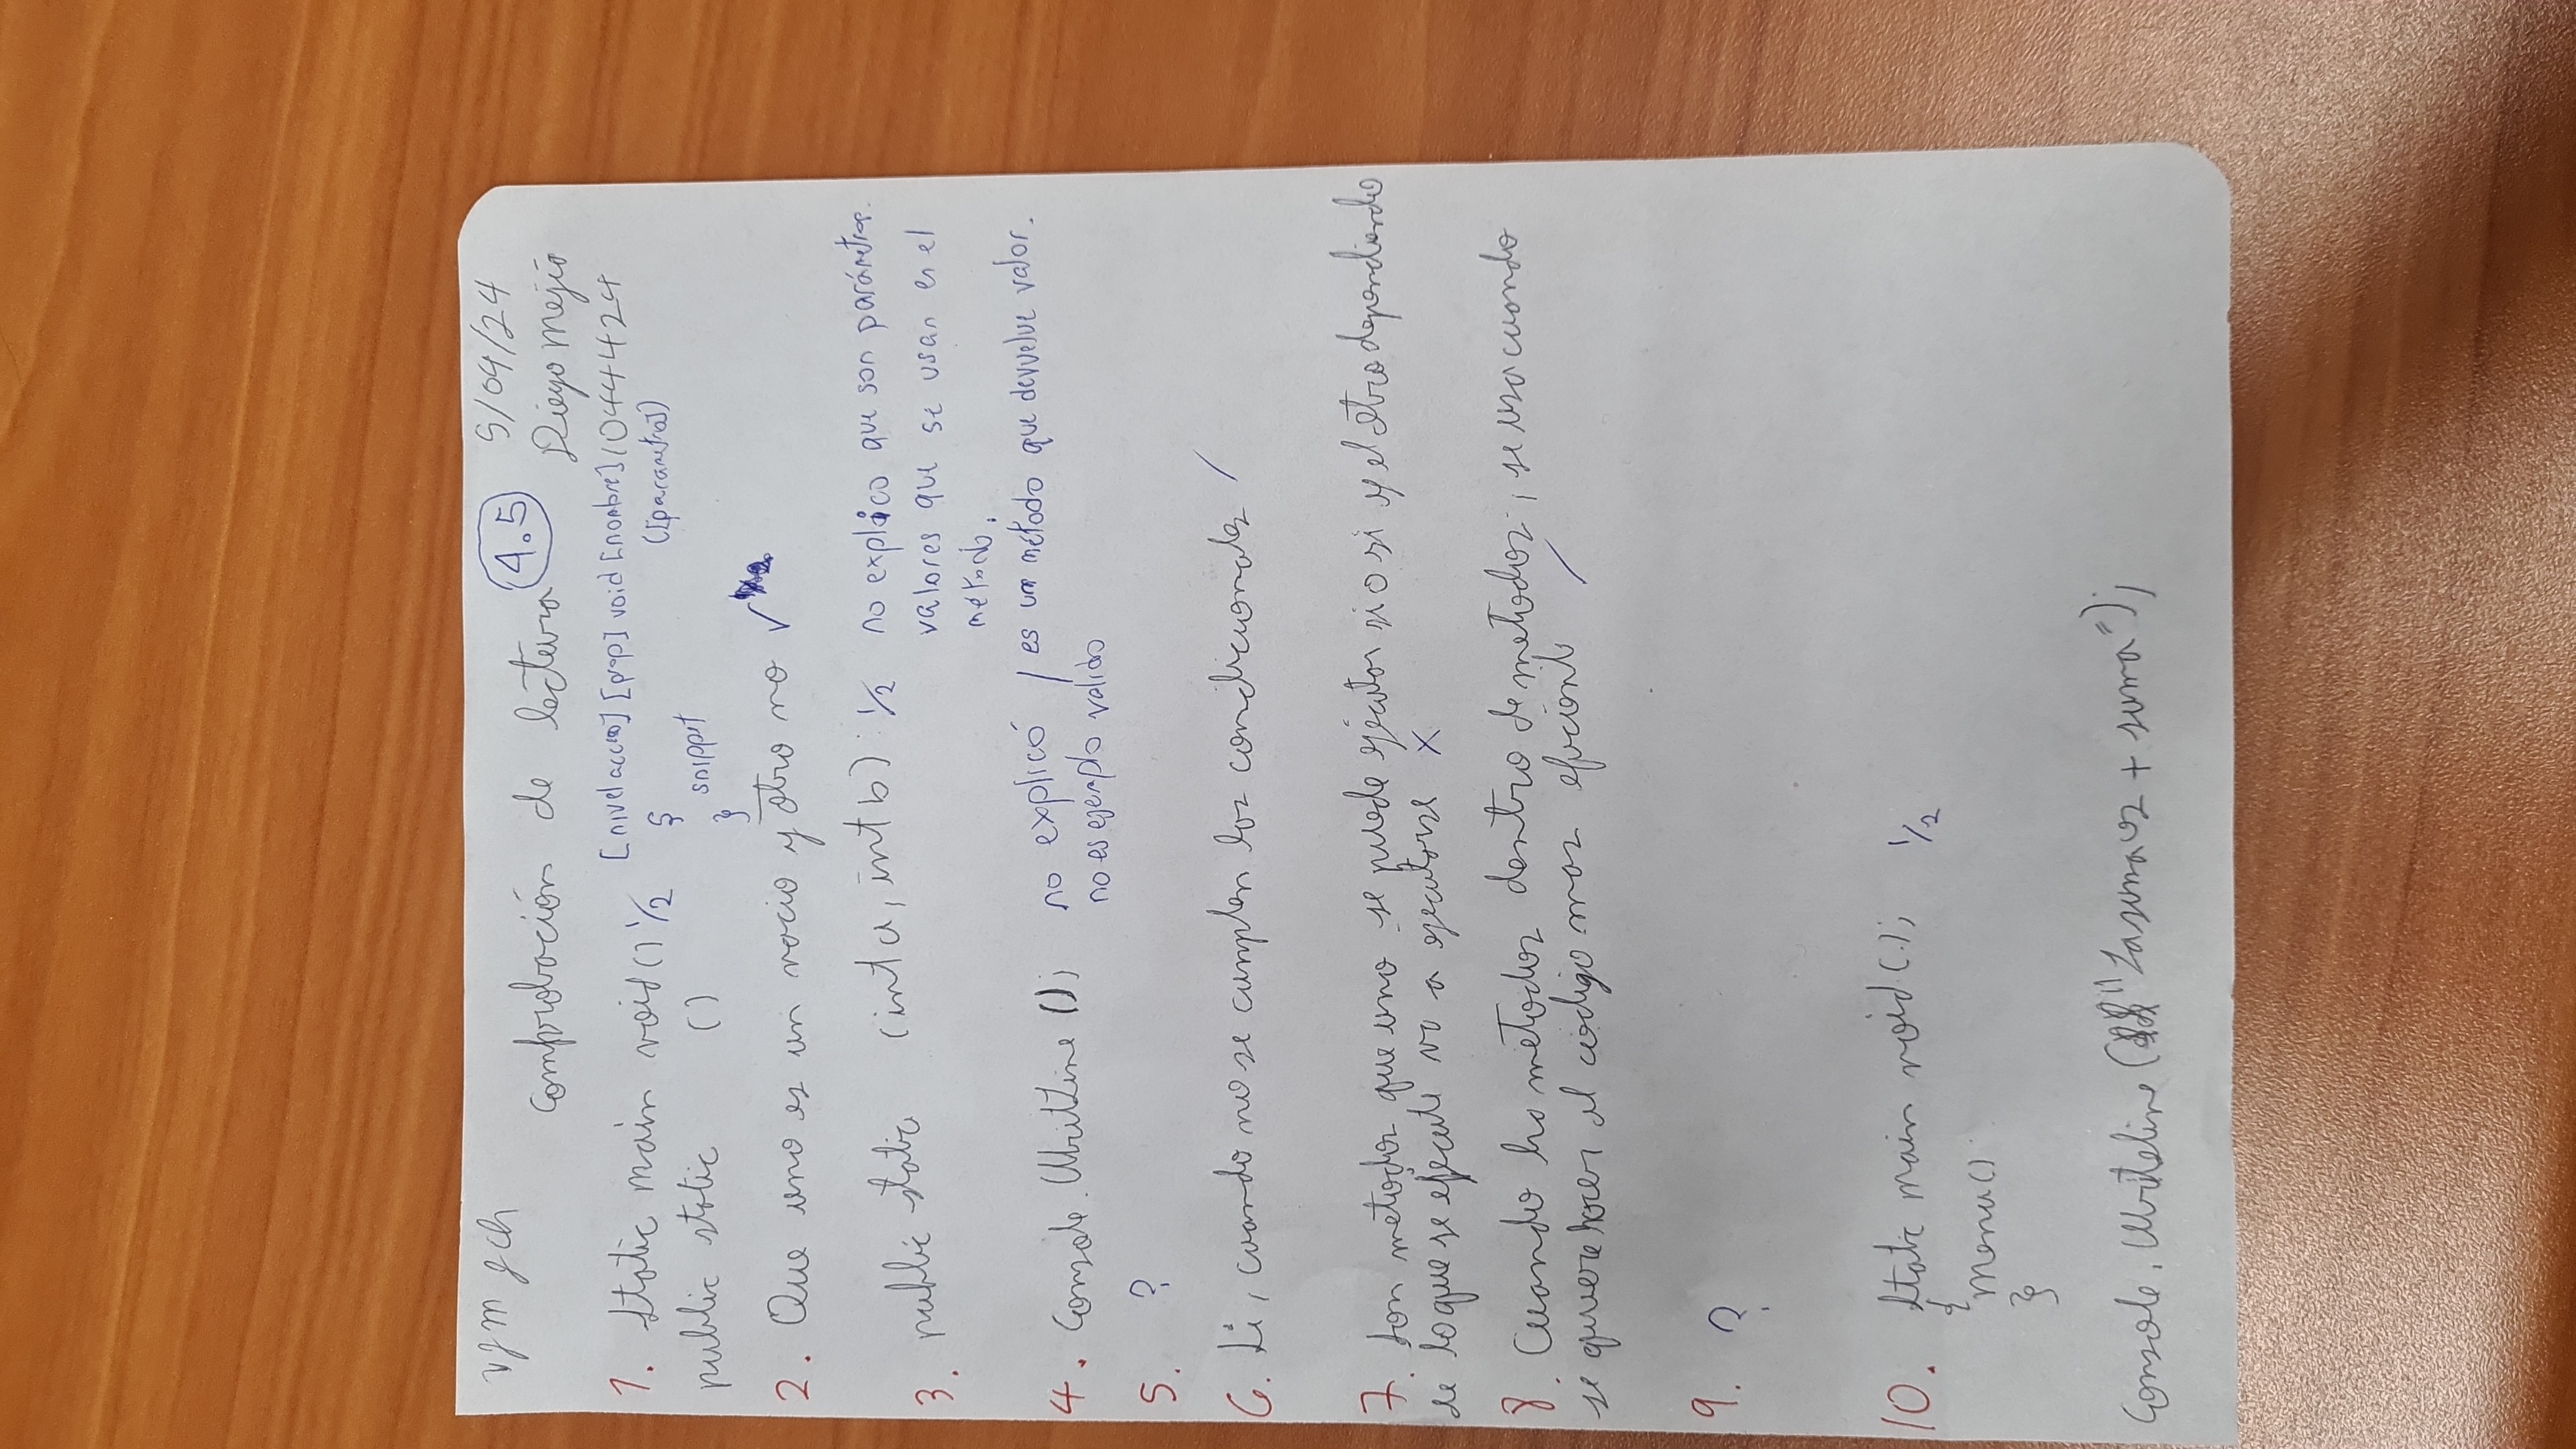 vfm gch
5/04/24
Comprobación de lectura 4.5
Diego Mejía
1044424
1. Static main void() 1/2
public static ()
[nivel acceso] [prop] void [nombre]
([parametro])
{
snippet
}
2. Que uno es un vacio y otro no ✓
3. public static (int a, int b) 1/2 no explico que son parámetros.
valores que se usan en el
método.
4. Console.WritLine (); no explicó / es un método que devuelve valor.
no es ejemplo valido
5. ?
6. Si, cuando no se cumplen los condicionales /
7. Son metodos que uno se puede ejecutar si o si y el otro dependiendo
de lo que se ejecute va a ejecutarse X
8. Cuando ha metodos dentro de metodos, se usa cuando
se quiere hacer el codigo mas eficient /
9. ?
10. Static main void(.); 1/2
{
menu()
}
Console.Writeline ("La suma es + suma");